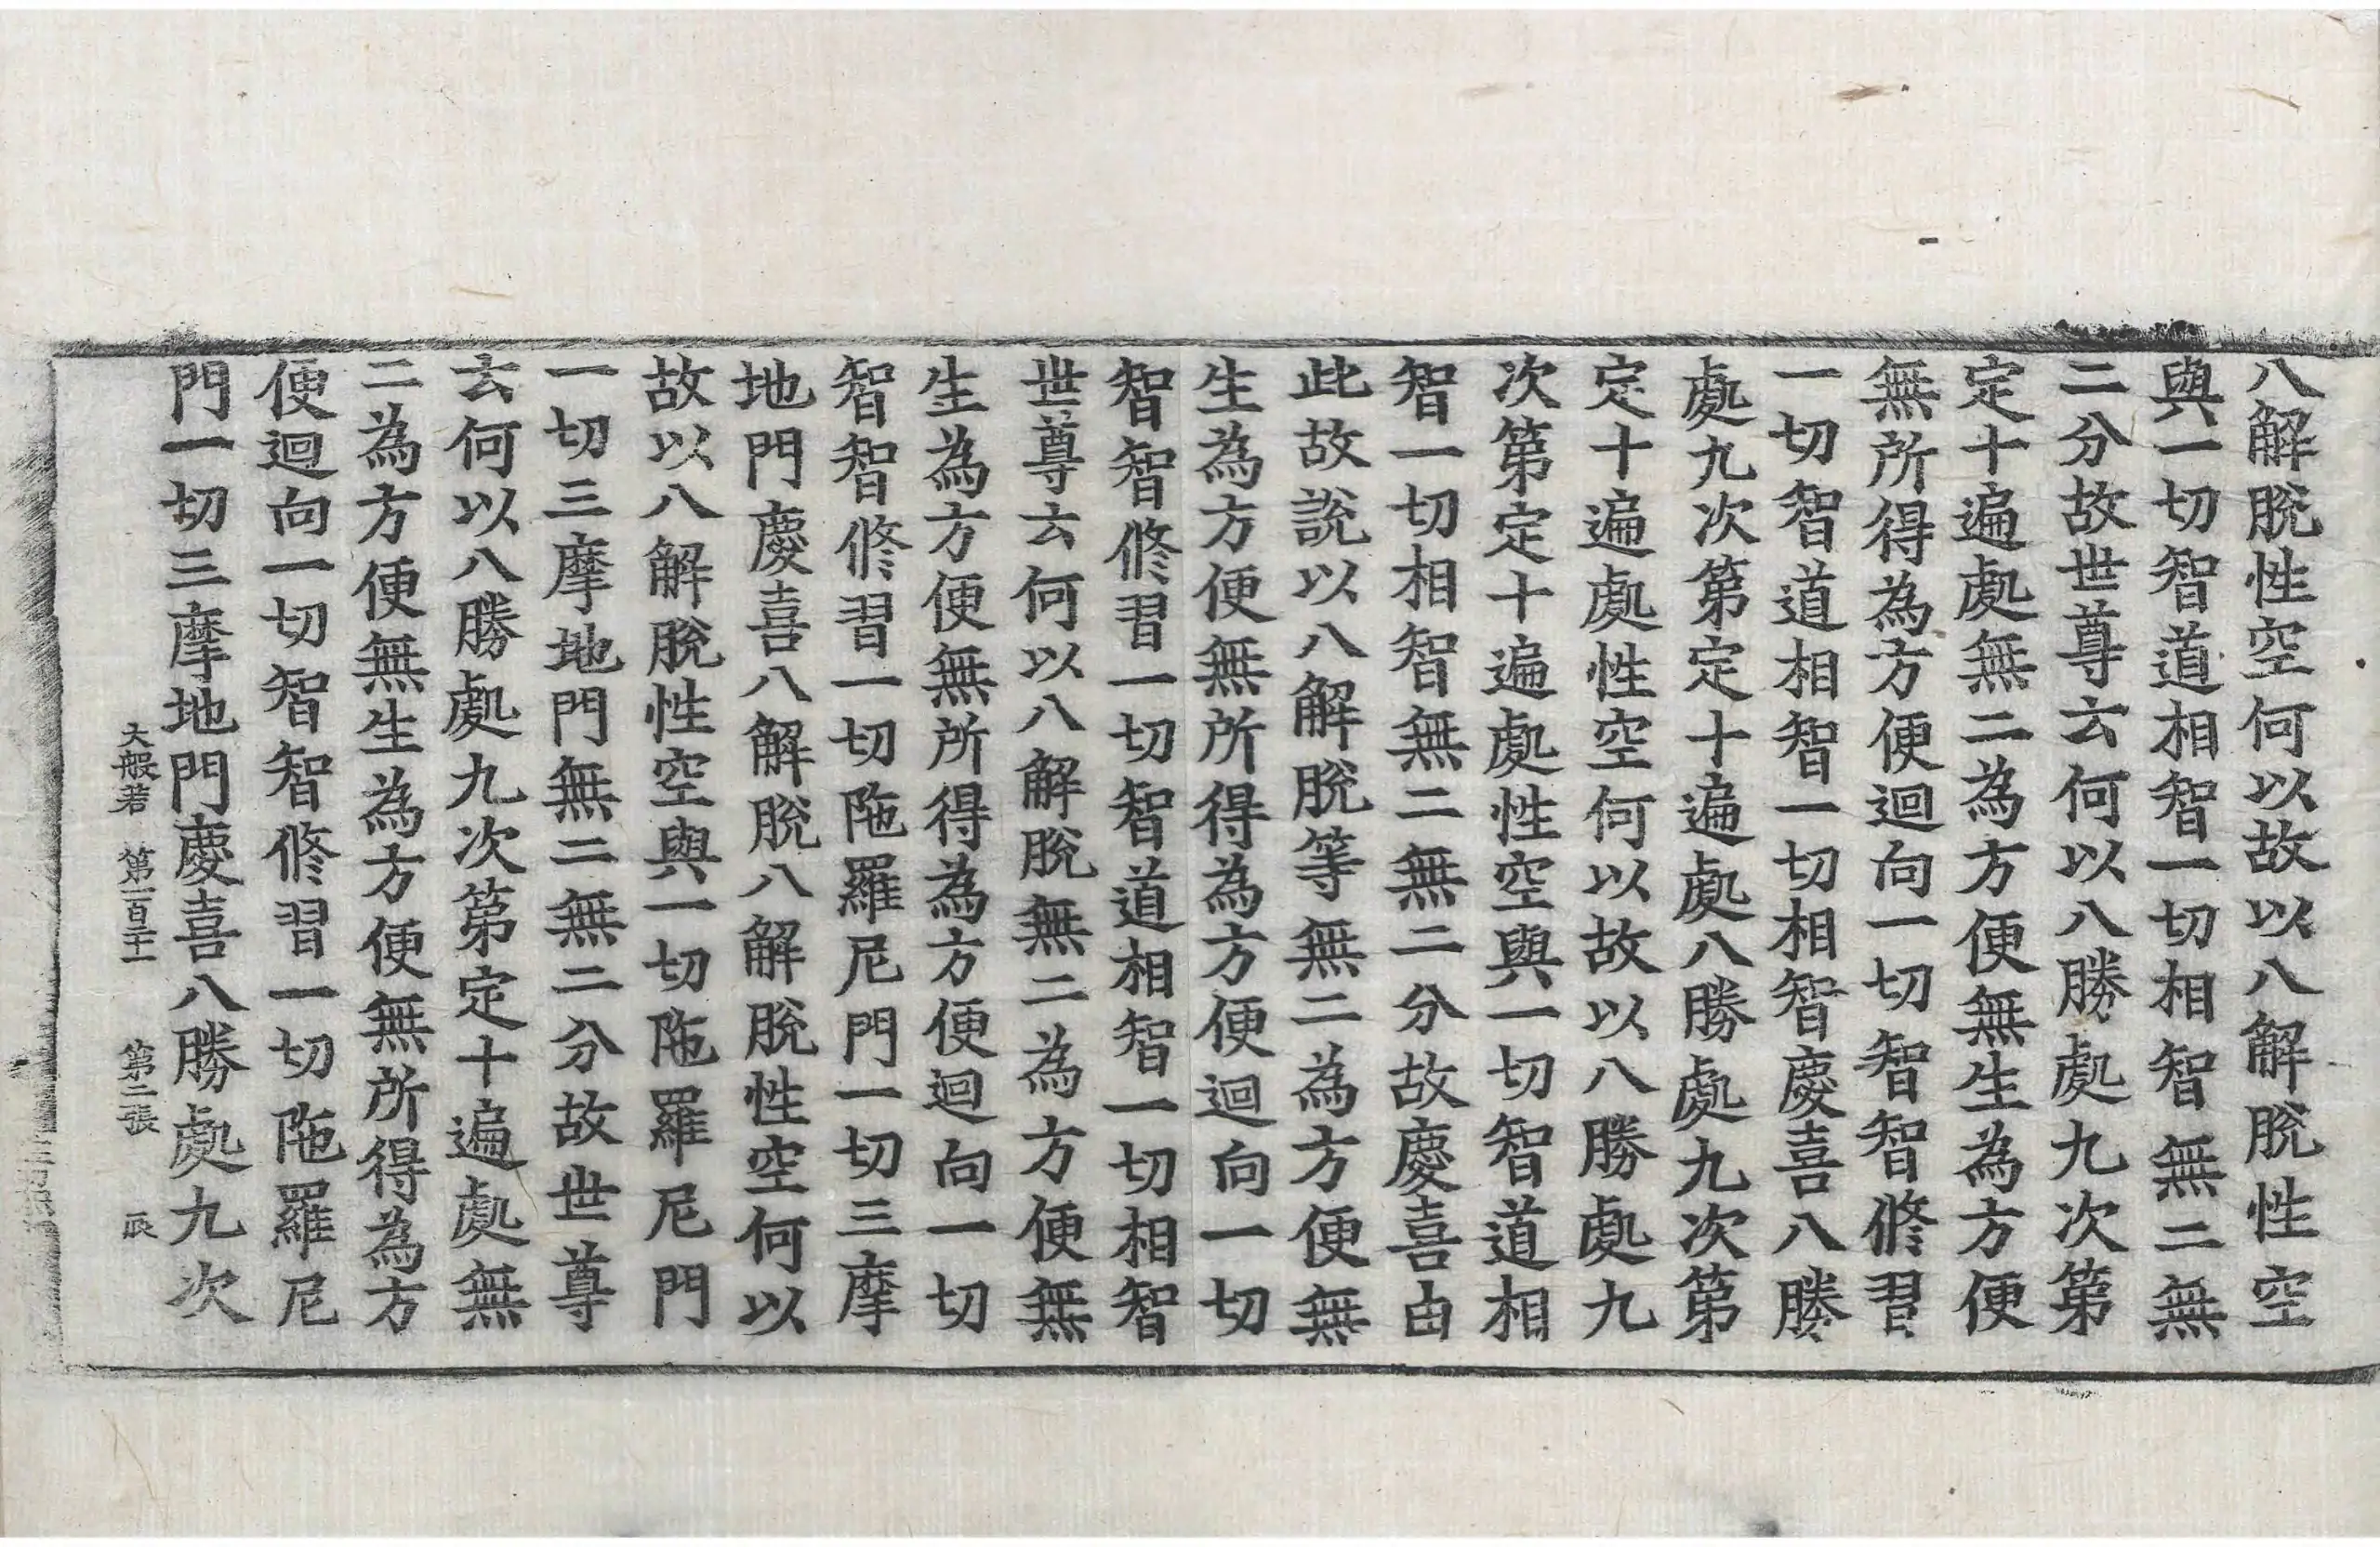 八解脫性空何以故以八解脫性空
與一切智道相智一切相智無二無
二分故世尊云何以八勝處九次第
定十遍處無二為方便無生為方便
無所得為方便迴向一切智智修習
一切智道相智一切相智慶喜八勝
處九次第定十遍處八勝處九次第
定十遍處性空何以故以八勝處九
次第定十遍處性空與一切智道相
智一切相智無二無二分故慶喜由
此故說以八解脫等無二為方便無
生為方便無所得為方便迴向一切
智智修習一切智道相智一切相智
世尊云何以八解脫無二為方便無
生為方便無所得為方便迴向一切
智智修習一切陁羅尼門一切三摩
地門慶喜八解脫八解脫性空何以
故以八解脫性空與一切陁羅尼門
一切三摩地門無二無二分故世尊
云何以八勝處九次第定十遍處無
二為方便無生為方便無所得為方
便迴向一切智智修習一切陁羅尼
門一切三摩地門慶喜八勝處九次
大般若 第一百二十一 第二張 辰